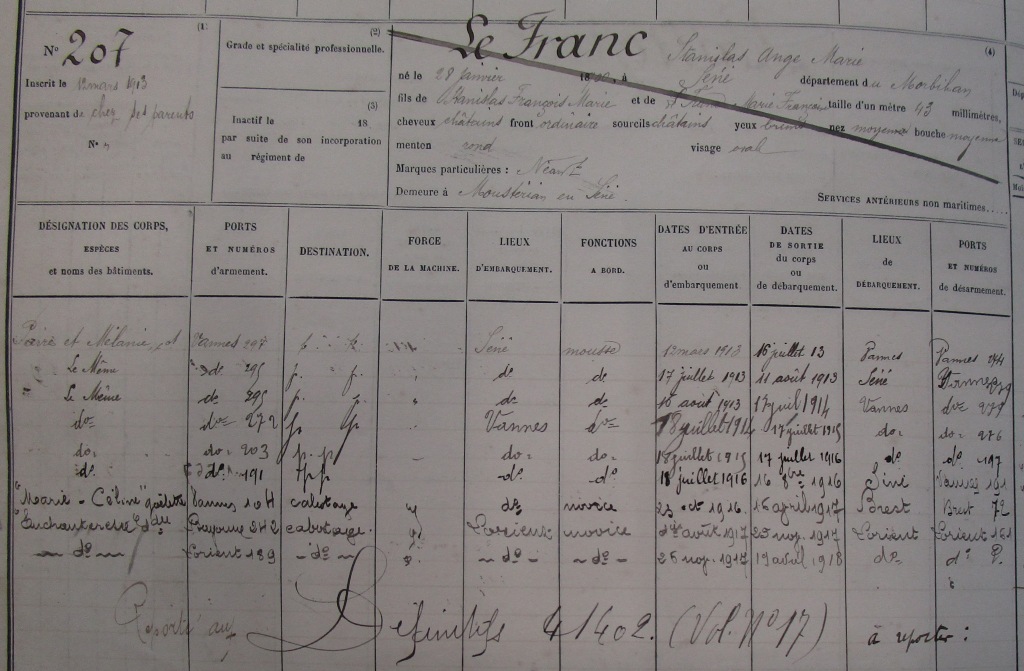 (1)
N° 207
Inscrit le 12 mars 1913
provenant de chez ses parents
N° "
(2)
Grade et spécialité professionnelle.
(3)
Inactif le 18
par suite de son incorporation
au régiment de
Le Franc Stanislas Ange Marie
(4)
né le 28 Janvier 18 , à Séné département du Morbihan
fils de Stanislas François Marie et de Marie Françoise taille d'un mètre 43 millimètres,
cheveux châtains front ordinaire sourcils châtains yeux bruns nez moyen bouche moyenne
menton rond visage oval
Marques particulières : Néant
Demeure à Moustérian en Séné.
SERVICES ANTÉRIEURS non maritimes.....
DÉSIGNATION DES CORPS, ESPÈCES et noms des bâtiments.
PORTS ET NUMÉROS d'armement.
DESTINATION.
FORCE DE LA MACHINE.
LIEUX D'EMBARQUEMENT.
FONCTIONS A BORD.
DATES D'ENTRÉE AU CORPS ou d'embarquement
DATES DE SORTIE du corps ou de débarquement.
LIEUX de DÉBARQUEMENT.
PORTS ET NUMÉROS de désarmement.
et Mélanie Vannes 207 p. p. Séné mousse 12 mars 1913 16 juillet 13 Vannes Vannes 244
Le Même de 295 p. p. de de 17 juillet 1913 11 août 1913 Séné Vannes 279
Le Même de 295 p. p. de de 16 août 1913 17 juil 1914 Vannes do 279
do do 272 p. p. Vannes do 18 juillet 1914 17 juillet 1915 do 276
do do 203 p. p. do do 18 juillet 1915 17 juillet 1916 do do 197
do do 191 p p do do 18 juillet 1916 16 bre 1916 Séné Vannes 191
"Marie-Céline" goélette Vannes 104 cabotage " do novice 23 oct 1916 16 avril 1917 Brest Brest 72
342 cabotage. Lorient novice août 1917 25 nov. 1917 Lorient Lorient 161
do Lorient 189 do do do 26 nov. 1917 19 avril 1918 do do
Reporté aux Définitifs 41402. (Vol. N° 17) à reporter :